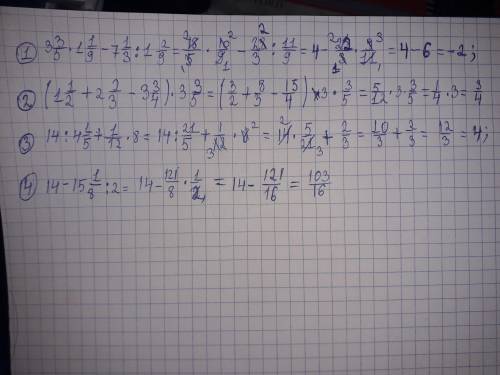 ① 3 3/5 · 1 1/9 - 7 1/3 : 1 2/9 = 18/5 · 10/9 - 22/3 : 11/9 = 4 - 22/3 · 9/11 = 4 - 6 = -2;
② (1 1/2 + 2 2/3 - 3 3/4) · 3 3/5 = (3/2 + 8/3 - 15/4) × 3 · 3/5 = 5/12 · 3 3/5 = 1/4 · 3 = 3/4
③ 14 : 4 1/5 + 1/12 · 8 = 14 : 21/5 + 1/12 · 8 = 14 · 5/21 + 2/3 = 10/3 + 2/3 = 12/3 = 4;
④ 14 - 15 1/8 : 2 = 14 - 121/8 · 1/2 = 14 - 121/16 = 103/16